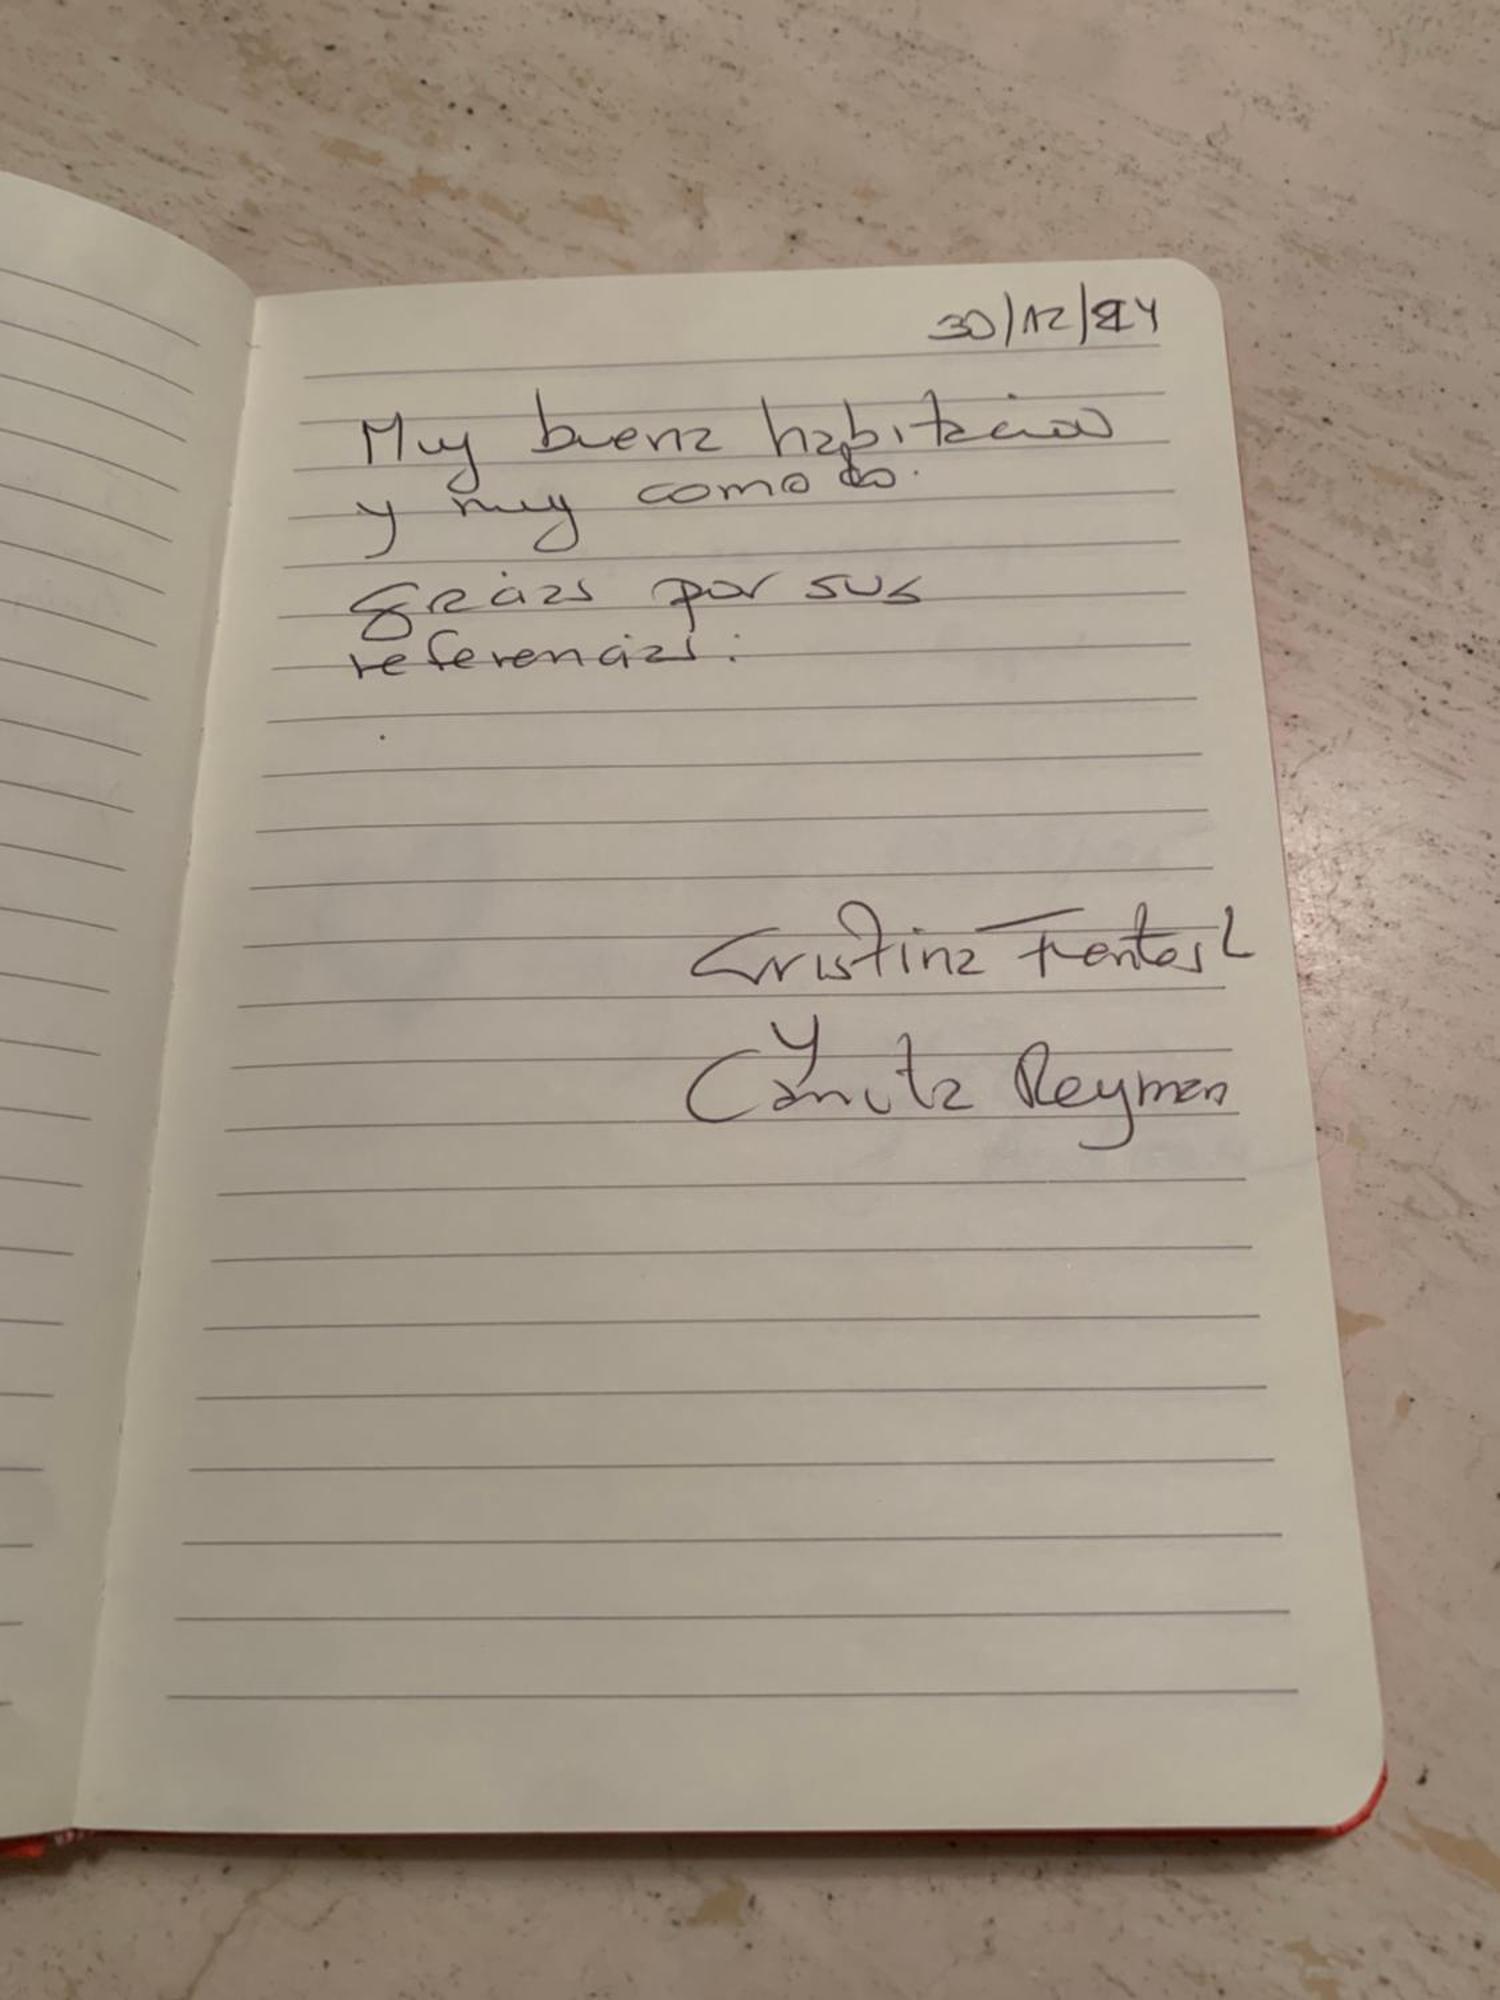 30/12/24
Muy buena habitacion
y muy comodo.
Gracias por sus
referencias.
Cristina
y
Canuta Reyman